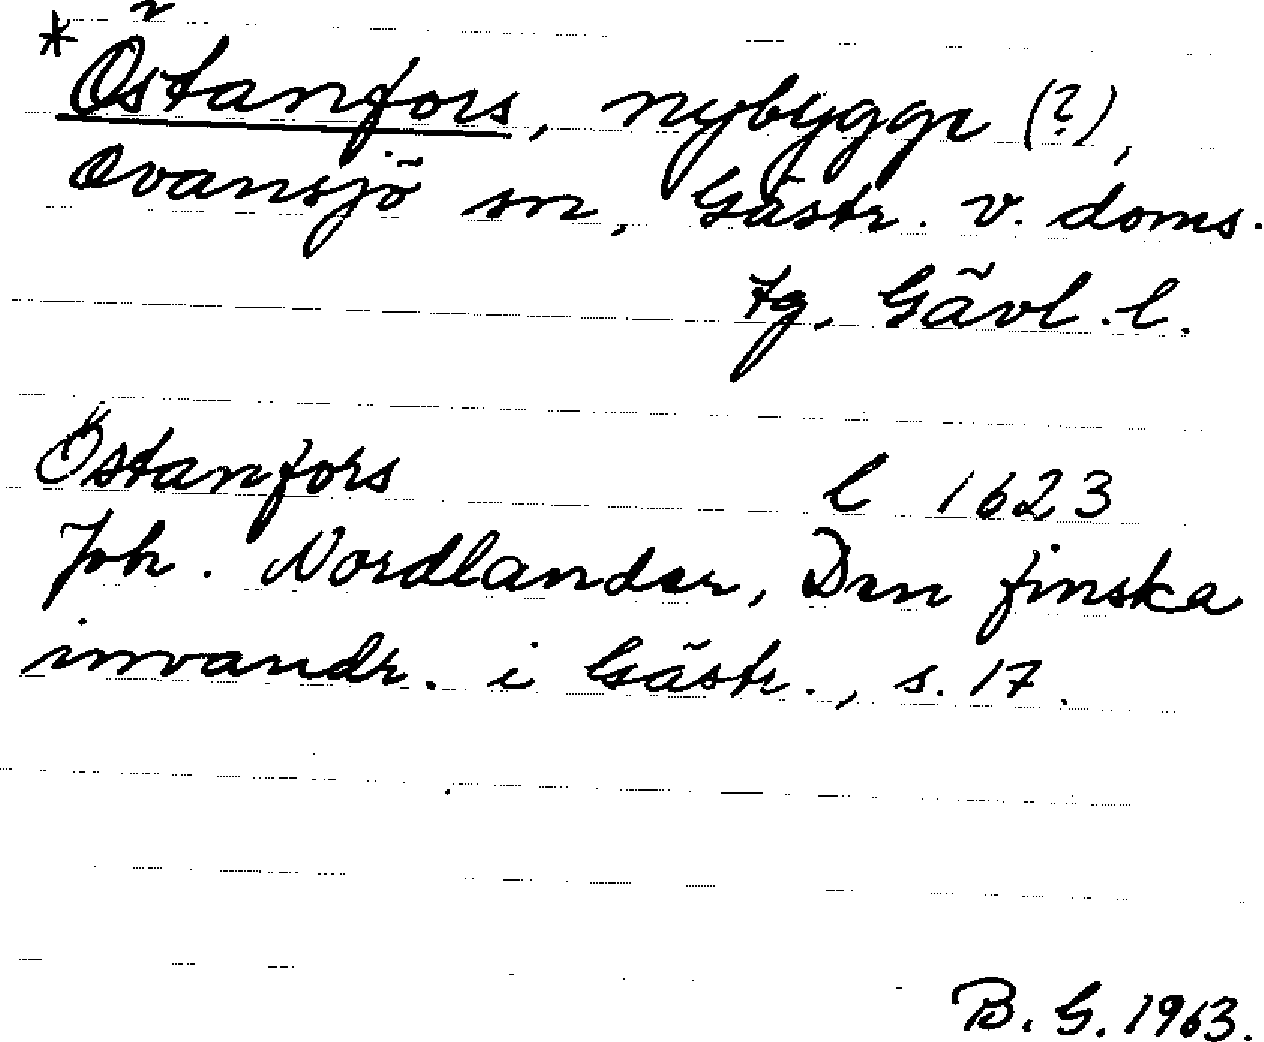 * Östanfors, nybygge (?),
Ovansjö sn, Gästr. v. doms.
tg, Gävl. l.
Östanfors l 1623
Joh. Nordlander, Den finska
invandr. i Gästr., s. 17.
B. G. 1963.